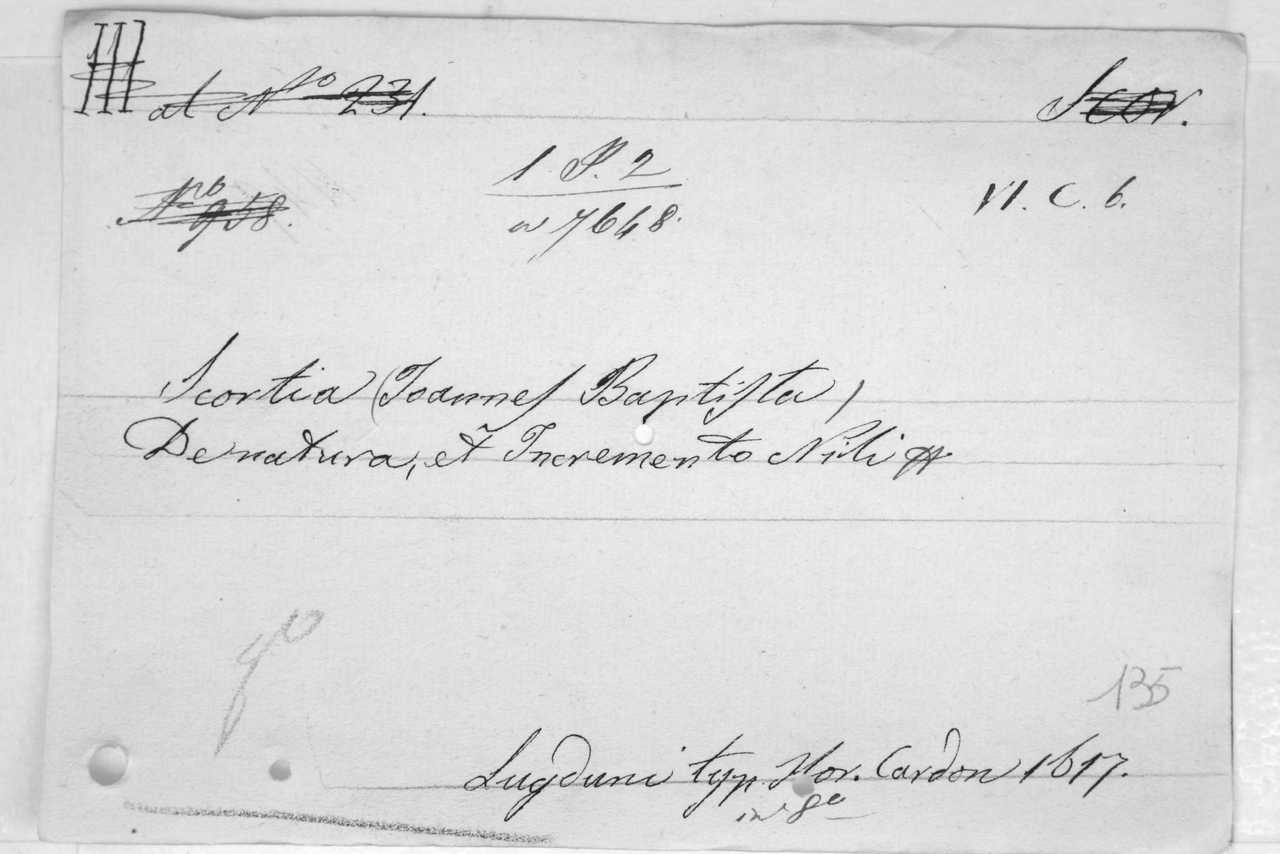 III ad Nro 231. Scor.
Nro 958. 1 P. 2 VI. C. 6.
w 7648.
Scortia (Joannes Baptista)
De natura, et Incremento Nili
135
Lugduni typ. Hor. Cardon 1617.
in 8o